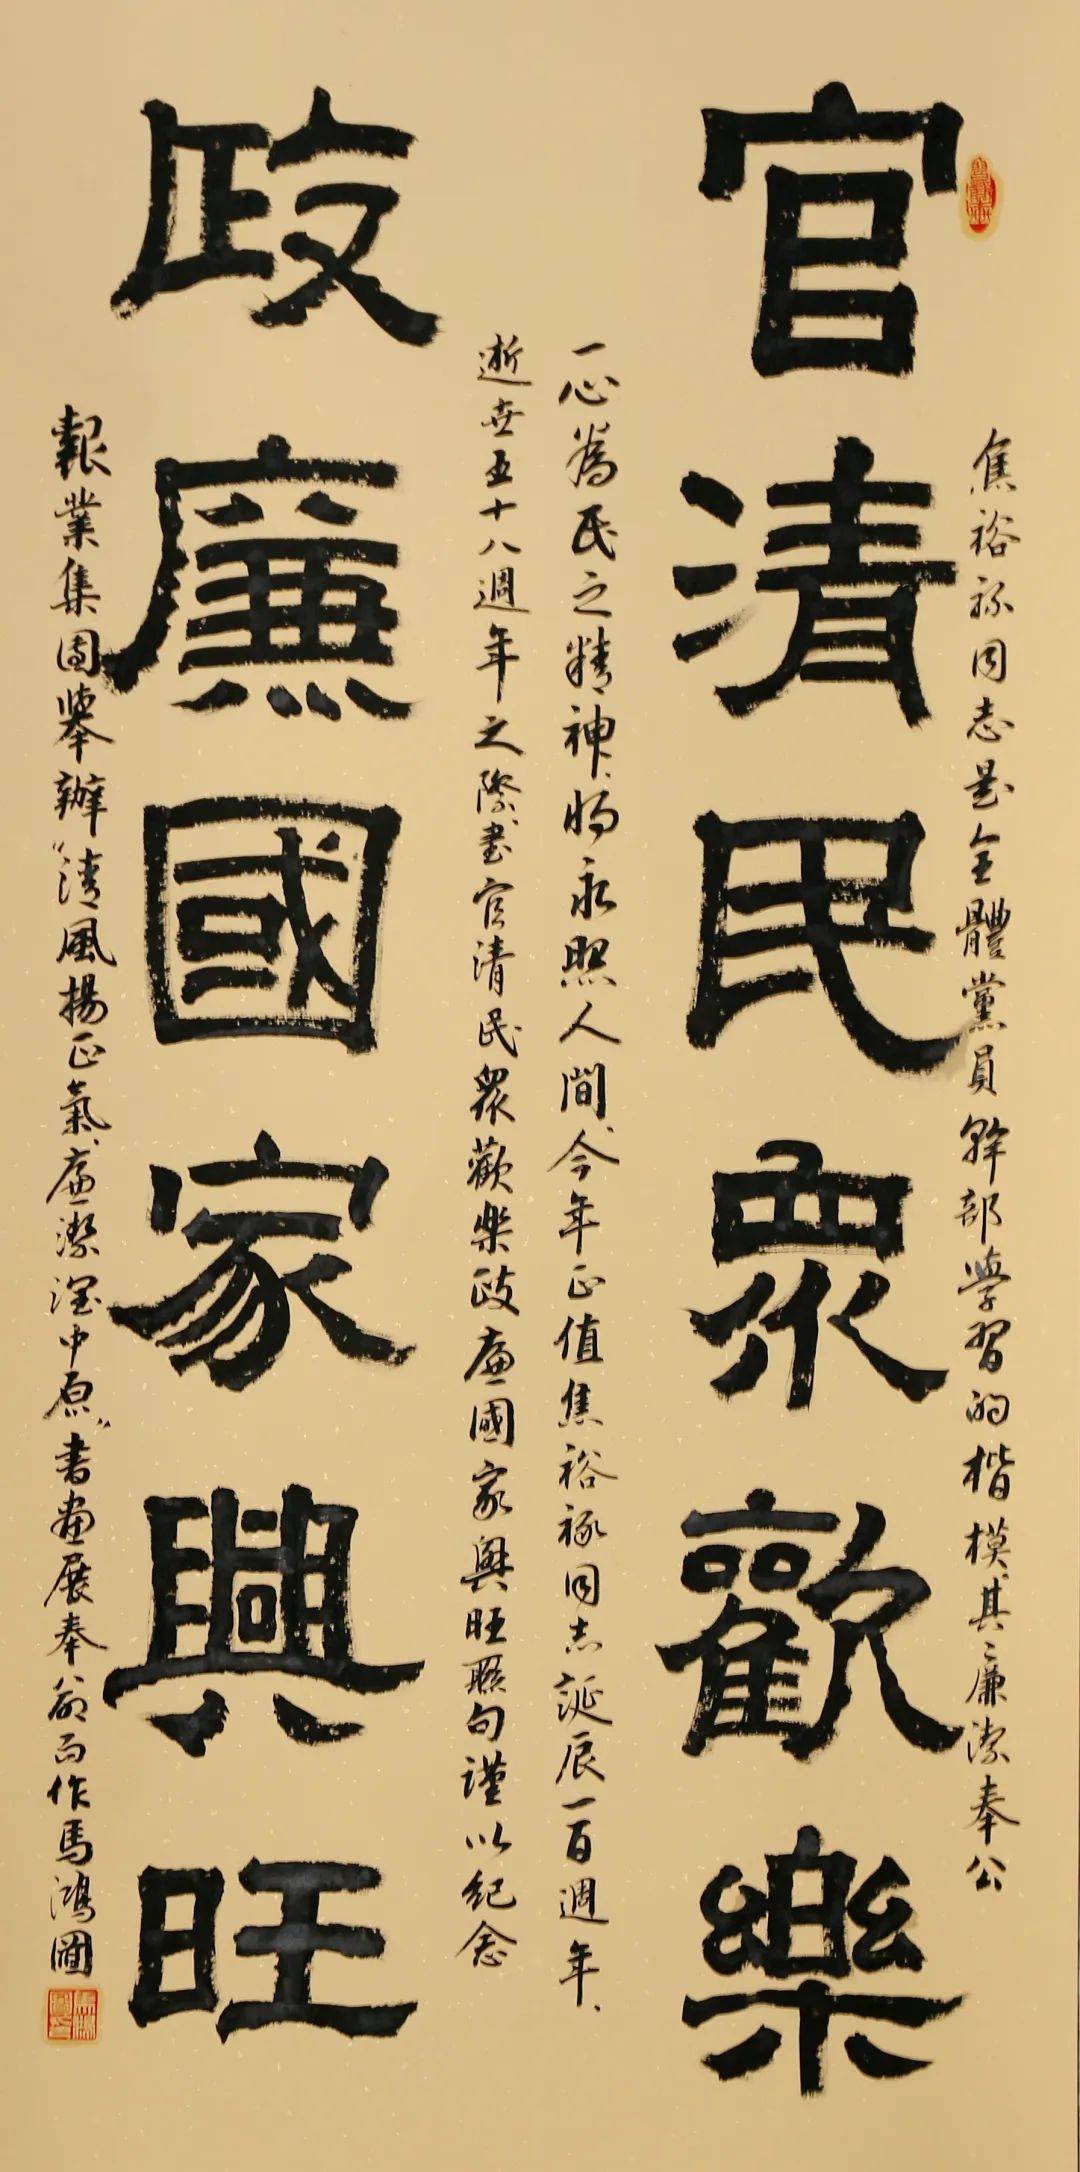 官清民眾歡樂
焦裕祿同志是全體黨員幹部學習的楷模其廉潔奉公
一心為民之精神將永照人間今年正值焦裕祿同志誕辰一百週年
逝世五十八週年之際書官清民眾歡樂政廉國家興旺聯句謹以紀念
政廉國家興旺
報業集團舉辦“清風揚正氣廉潔潤中原”书畫展奉命而作馬鴻圖